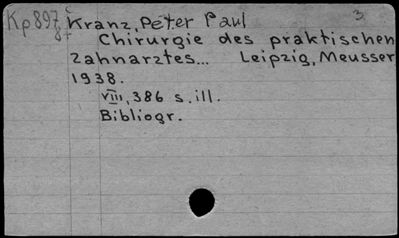 Kp897 Kranz, Peter Paul 3
8f Chirurgie des praktischen
Zahnarztes... Leipzig, Meusser
1938.
VIII, 386 s. ill.
Bibliogr.